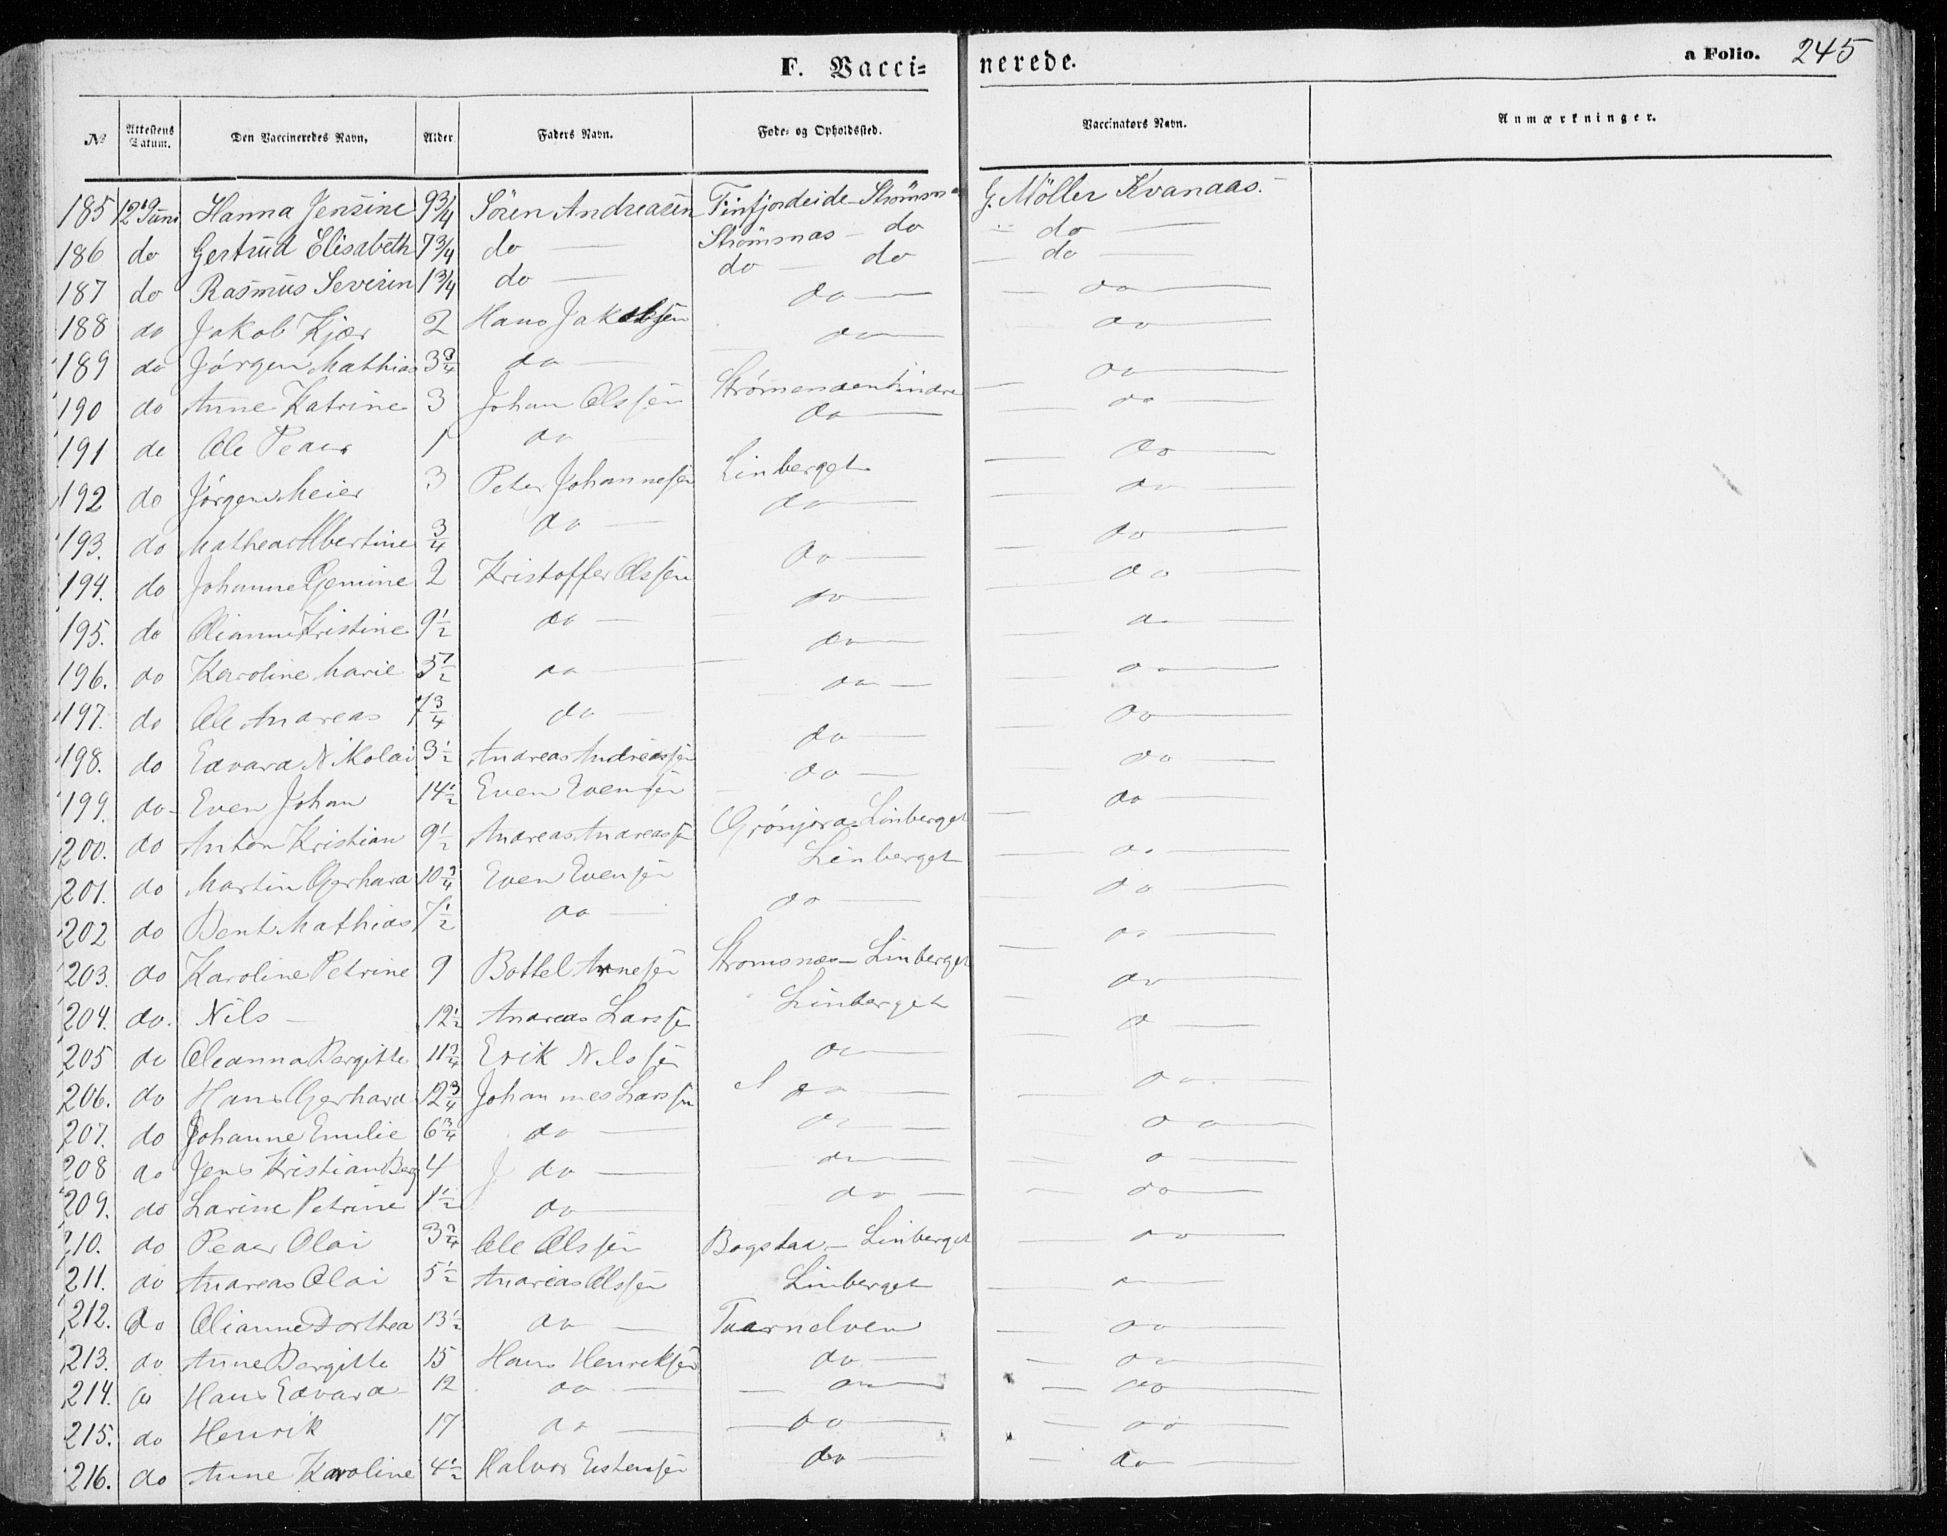 F. Vacci= nerede. a Folio. 245
№ Attestens Datum. Den Vaccineredes Navn, Alder Faders Navn. Føde= og Opholdssted. Vaccinators Navn. Anmærkninger.
185 12 Juni Hanna Jensine 9 3/4 Sören Andreasen Finfjordeide Strømsn G. Möller Kvanaas.
186 do Gertrud Elisabeth 7 3/4 do — Strømsnas — do do —
187 do Rasmus Severin 1 3/4 do — do — do — do —
188 do Jakob Kjær 2 Hans Jakobsen do — — do —
189 do Jørgen Mathias 3 3/4 do — do — do —
190 do Anne Katrine 3 Johan Olssen Strømenden Indre — do —
191 do Ole Peder 1 do — do — do —
192 do Jørgen Meier 3 Peter Johannesen Linberget — do —
193. do Mathea Albertine 3/4 do — do — — do —
194. do Johanne 2 Kristoffer Olssen do — — do —
195. do Olianne Kristine 9 1/2 do — do — do —
196. do Karoline Marie 5 1/2 do — do — — do —
197. do Ole Andreas 7 3/4 do — do — — do —
198. do Edvard Nikolai 3 1/2 Andreas Andreassen do — — do —
199. do Even Johan 14 1/2 Even Evensen do — — do —
200. do Anton Kristian 9 1/2 Andreas Andreassen Grönjord Linberget — do —
201. do Martin Gerhard 10 3/4 Even Evensen Linberget — do —
202 do Bent Mathias 7 1/2 do — do — — do —
203. do Karoline Petrine 9 Bottel Arnesen Stromsnæs — Linberget — do —
204. do. Nils — 12 1/2 Andreas Larssen Linberget — do —
205 do Oleanna Bergitte 11 3/4 Erik Nilssen do — — do —
206. do Hans Gerhard 12 3/4 Johannes Larssen do — — do —
207. do Johanne Emilie 6 3/4 do — do — do —
208 do Jens Kristian Berg 4 do — do — do —
209. do Larine Petrine 1 1/2 do — do — — do —
210. do Peder Olai 3 3/4 Ole Olssen Bogstad — Linberget — do —
211. do Andreas Olai 5 1/2 Andreas Olssen Linberget — do —
212. do Olianne Dorthea 13 1/2 do — Taarnelven — do —
213. do Anne Bergitte 15 Hans Henriksen do — — do —
214. do Hans Edvard 12 do — — do — — do —
215. do Henrik 17 do — — do — — do —
216. do Anne Karoline 4 1/2 Halvor Eistensen do — — do —